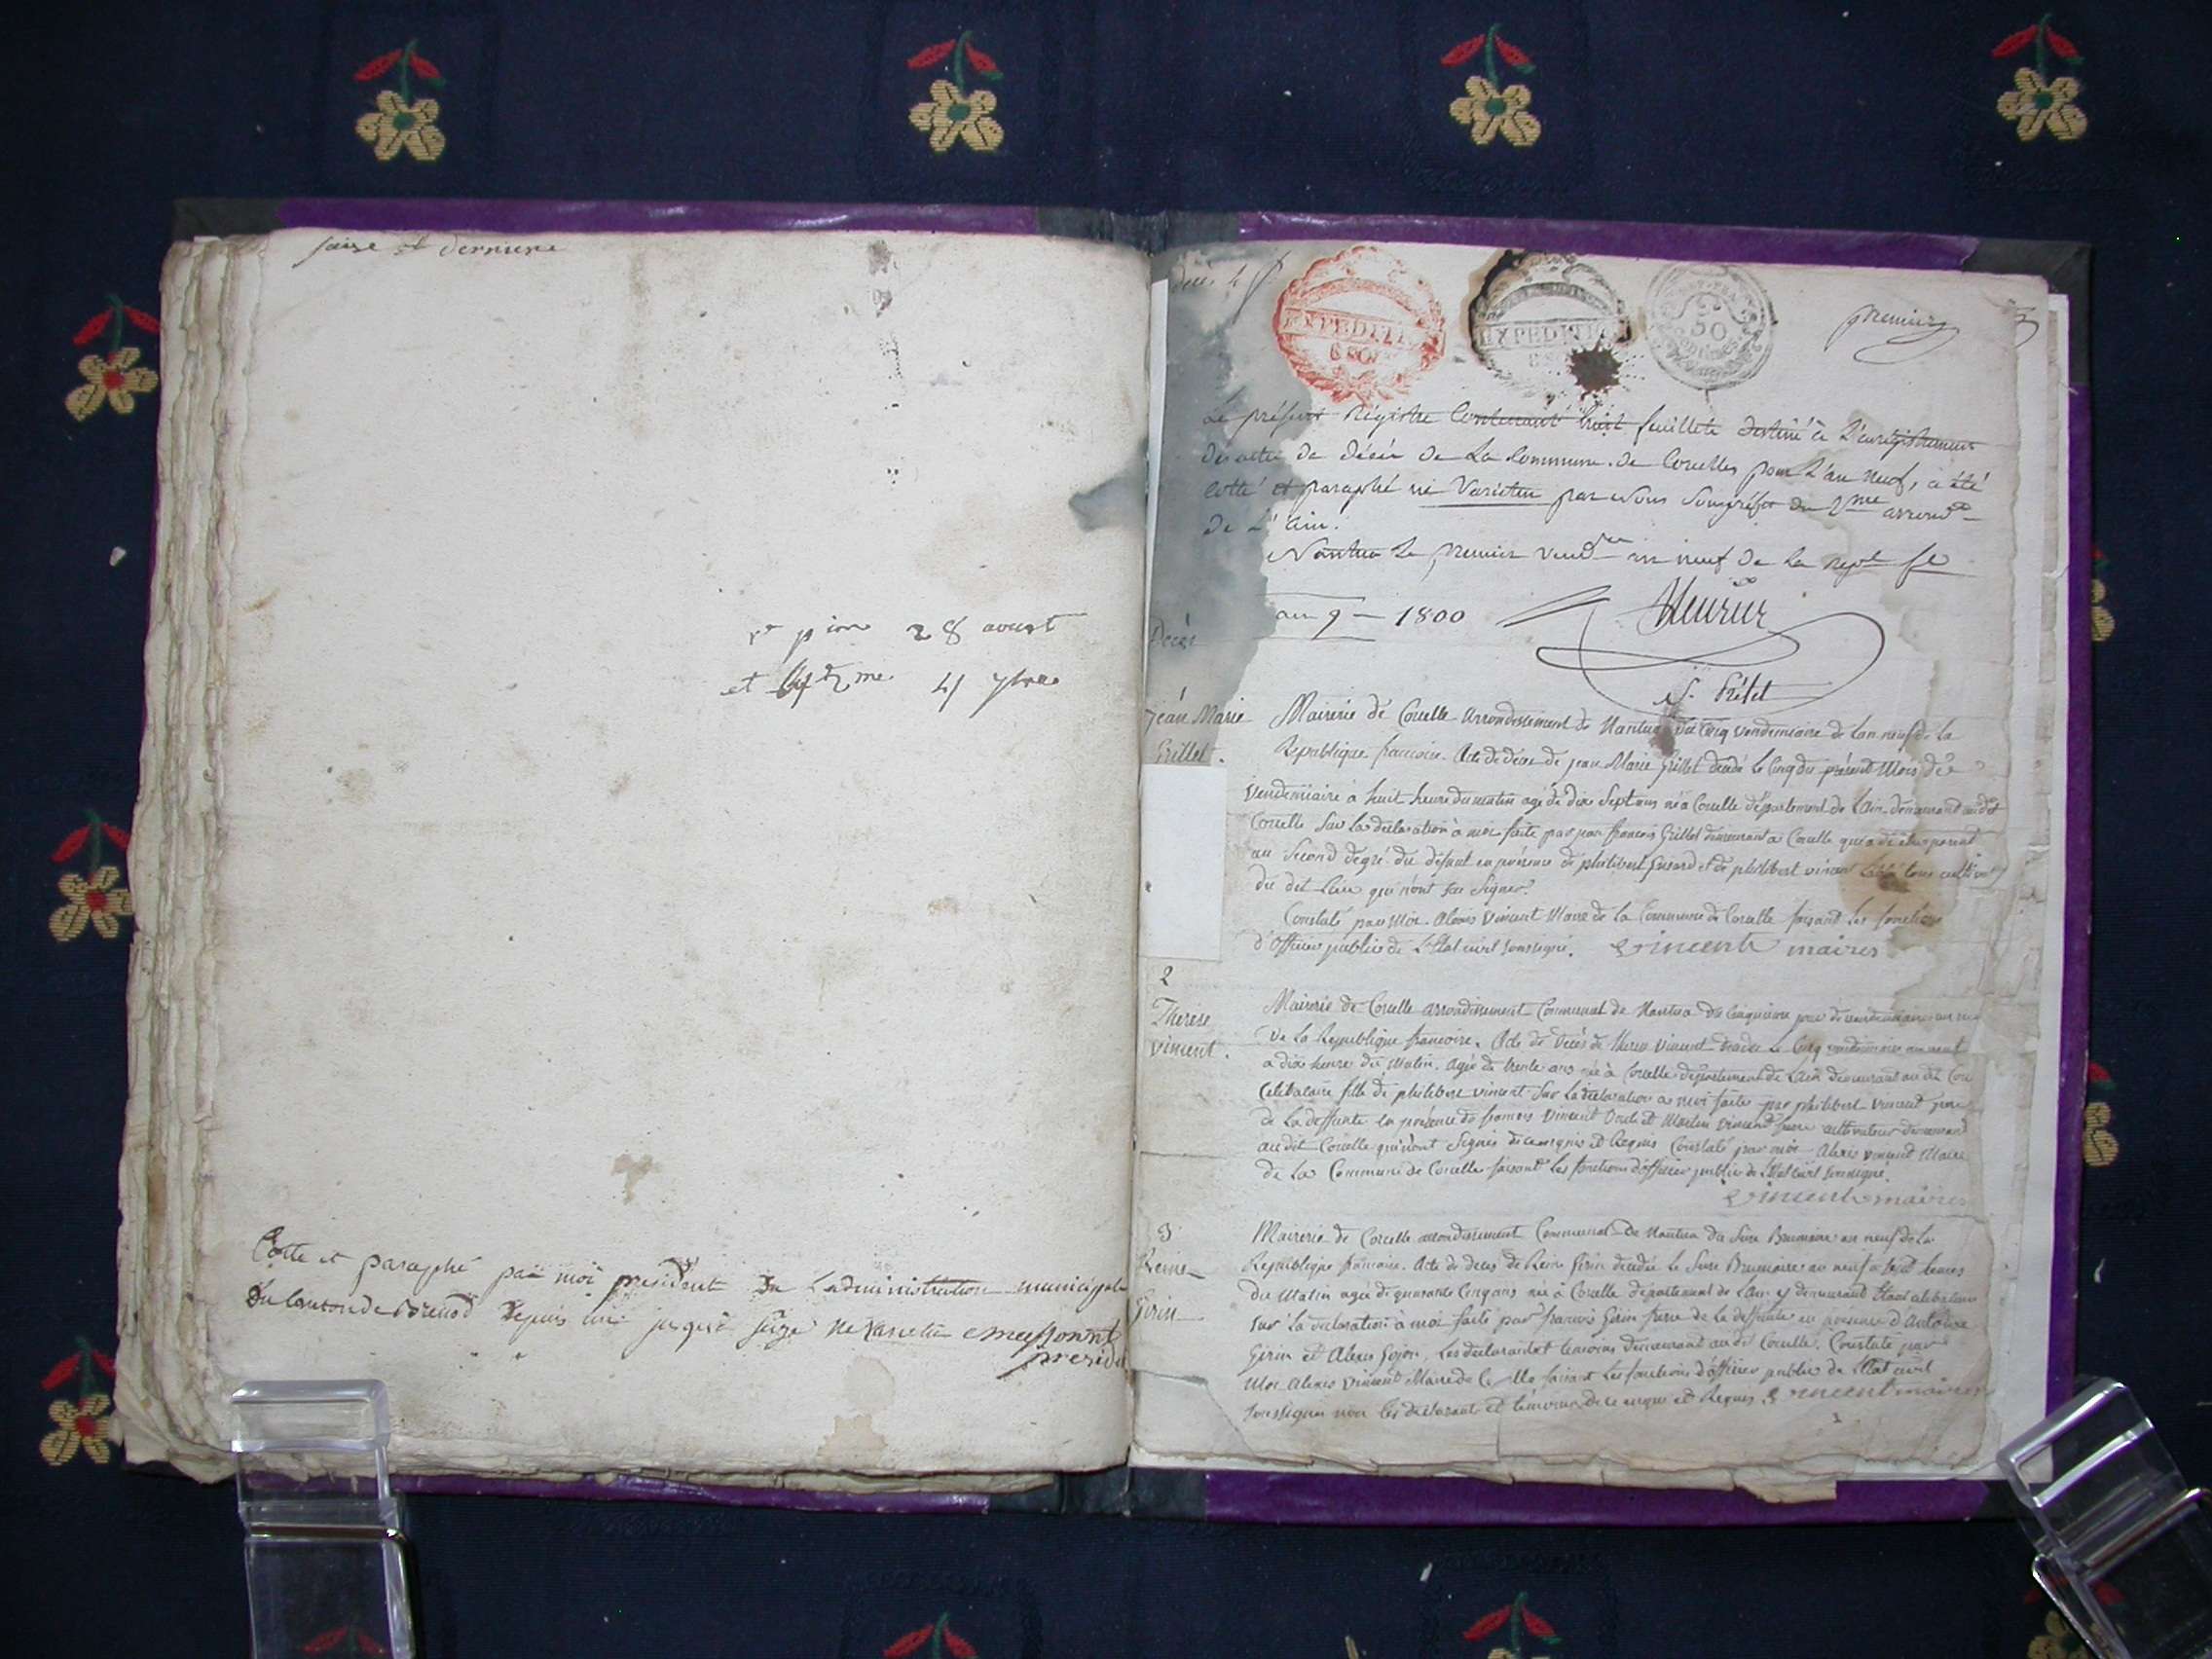 saize et derniere
28 aoust
et
Cotte et paraphé par moi president de Ladministration municipale
Du Canton de Brenod Depuis un jusqu'à saize ne varietur
presidt
premier
EXPEDITION
EXPEDITION
50
centimes
Le présent Régistre Contenant huit feuillets destiné à L'enregistrement
des actes de décès de La Commune de Corcelles pour L'an neuf, a été
cotté et paraphé ne Varietur par Nous Souspréfet du 2me arrond
de L'ain.
Nantua Le premier vend an neuf de la rep fse
Décès
an 9 — 1800
S. Préfet
jean Marie
Grillet.
Mairerie de Corcelle arrondissement de Nantua du Cinq vendemiaire de lan neuf de la
Republique francoise. Acte de décès de jean Marie Grillet décédé le Cinq du présent Mois de
vendemiaire à huit heure du matin agé de dix Sept ans né a Corcelle département de Lain demeurant audit
Corcelle Sur la déclaration à moi faite par françois Grillet demeurant a Corcelle qui a dit être parent
au Second degré du défunt en présence de philibert et de philibert vincent tous
du dit Lieu qui n'ont su Signer.
Constaté par Moi Alexis Vincent Maire de la Commune de Corcelle faisant les fonctions
d'officier public de L'Etat civil soussigné. vincent maires
2
Therese
vincent.
Mairerie de Corcelle arrondissement Communal de Nantua du Cinquieme jour de vendemiaire an
De La Republique francoise. Acte de décès de Therese Vincent décédée Le Cinq vendemiaire an neuf
a dix heure du Matin, agée de trente ans née à Corcelle département de Lain demeurant au dit
Celibataire fille de philibert vincent Sur La déclaration a moi faite par philibert vincent
de La deffunte en présence de francois Vincent Oncle et Martin Vincent frere cultivateur demeurant
au dit Corcelle qui n'ont Signés de ce enquis et Requis Constaté par moi Alexis vincent Maire
de La Commune de Corcelle faisant les fonctions d'officier public de L'Etat civil soussigné.
vincent maires
3
Reine
Girin
Mairerie de Corcelle arrondissement Communal de Nantua du Seize Brumaire an neuf de La
Republique francoise. Acte de décès de Reine Girin décédée le Seize Brumaire an neuf a Sept heures
du Matin agée de quarante Cinq ans née à Corcelle département de Lain y demeurant Etant celibataire
sur La déclaration à moi faite par francois Girin frere de La deffunte en presence d'Antoine
Girin et Alexis Gojon, Les declarant et temoins demeurant au dit Corcelle. Constaté par
Moi Alexis Vincent Maire de faisant Les fonctions d'officier public de L'Etat civil
soussigné non les declarant et temoins de ce enquis et Requis. vincent maires